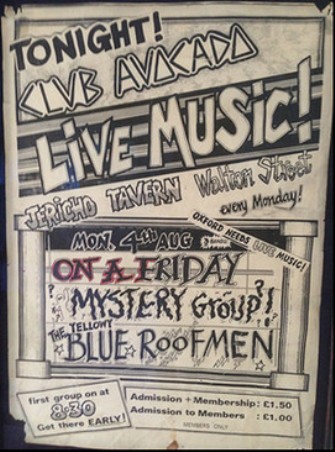 TONIGHT!
CLUB AVOCADO
LIVE MUSIC!
JERICHO TAVERN Walton Street
every Monday!
OXFORD NEEDS LIVE MUSIC!
MON, 4th AUG 3 BANDS
ON A FRIDAY
? MYSTERY GROUP! ?
THE YELLOWY BLUE ROOFMEN
first group on at
8:30
Get there EARLY!
Admission + Membership: £1.50
Admission to Members : £1.00
MEMBERS ONLY